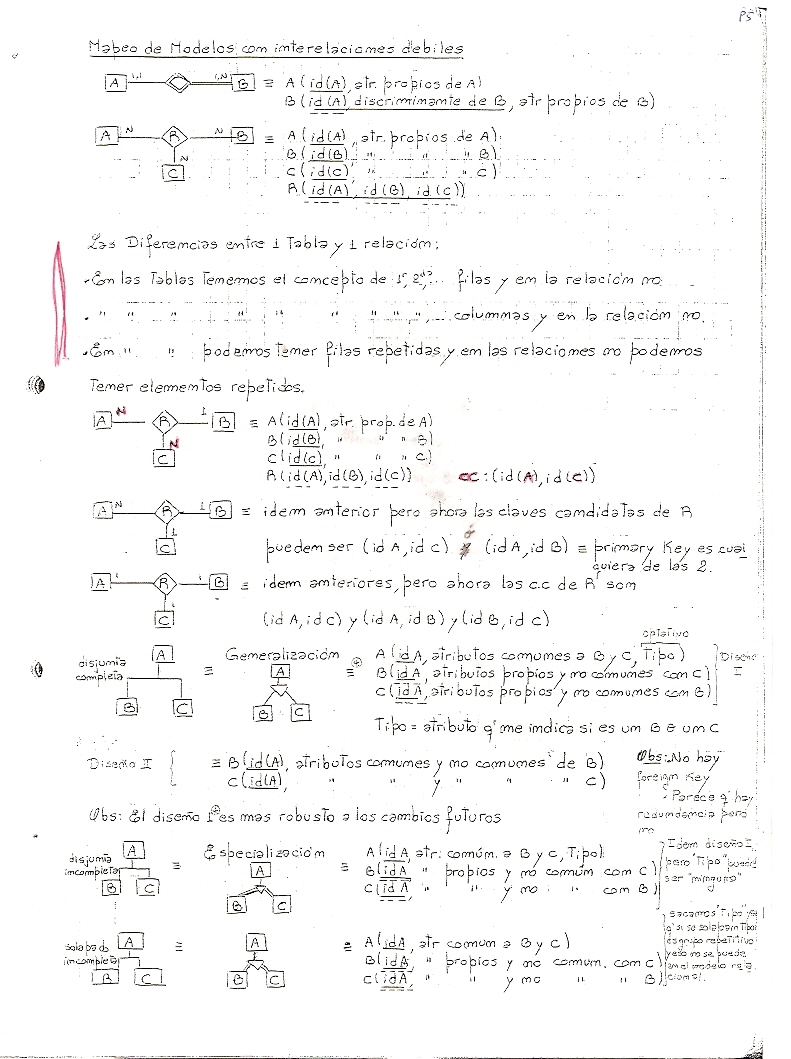 P5
Mapeo de Modelos con interelaciones debiles
A 1,1 1,N B ≡ A (id(A), atr. propios de A)
B (id(A), discriminante de B, atr propios de B)
A N R N B ≡ A (id(A), atr. propios de A)
B (id(B), " " " B)
N C C (id(C), " " " C)
R (id(A), id(B), id(C))
Las Diferencias entre 1 Tabla y 1 relación:
En las Tablas Tenemos el concepto de 1º, 2º,... filas y en la relación no
" " " " " " " " ... columnas y en la relación no.
En " " podemos tener filas repetidas y en las relaciones no podemos
Tener elementos repetidos.
A N R 1 B ≡ A (id(A), atr. prop. de A)
B (id(B), " " " B)
N C C (id(C), " " " C)
R (id(A), id(B), id(C)) CC: (id(A), id(C))
A N R 1 B ≡ idem anterior pero ahora las claves candidatas de R
1 C pueden ser (id A, id C) ó (id A, id B) ≡ primary Key es cual
quiera de las 2.
A 1 R 1 B ≡ idem anteriores, pero ahora las c.c de R son
1 C (id A, id C) y (id A, id B) y (id B, id C)
optativo
disjunta completa A B C ≡ Generalización A B C ≡ A (id A, atributos comunes a B y C, Tipo)
B (id A, atributos propios y no comunes con C)
C (id A, atributos propios y no comunes con B)
Diseño I
Tipo = atributo q' me indica si es un B o un C
Diseño II ≡ B (id(A), atributos comunes y no comunes de B)
C (id(A), " " y " " " C)
Obs: No hay
foreign Key
- Parece q' hay
redundancia pero
no
Obs: El diseño I es mas robusto a los cambios futuros
disjunta incompleta A B C ≡ Especialización A B C ≡ A (id A, atr. común. a B y C, Tipo)
B (id A, " propios y no común con C)
C (id A, " " y no " con B)
Idem diseño I,
pero "Tipo" puede
ser "ninguno"
solapada incompleta A B C ≡ A B C ≡ A (id A, atr comun a B y C)
B (id A, " propios y no comun. con C)
C (id A, " " y no " " B)
sacamos "Tipo" ya
q' si se solapan Tipo
es grupo repetitivo
y eso no se puede
en el modelo rela
cional.